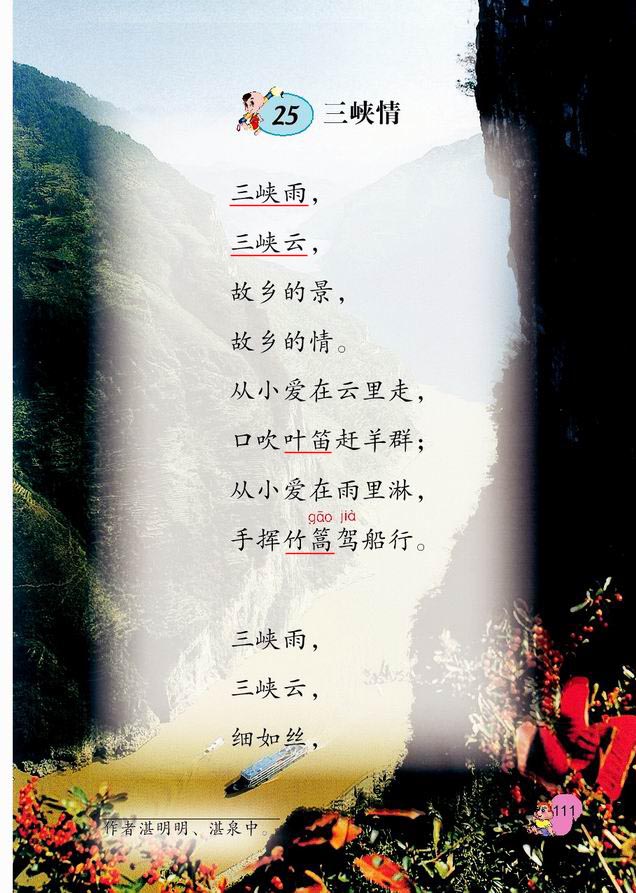 25 三峡情
三峡雨，
三峡云，
故乡的景，
故乡的情。
从小爱在云里走，
口吹叶笛赶羊群；
从小爱在雨里淋，
gāo jià
手挥竹篙驾船行。
三峡雨，
三峡云，
细如丝，
作者湛明明、湛泉中。
111